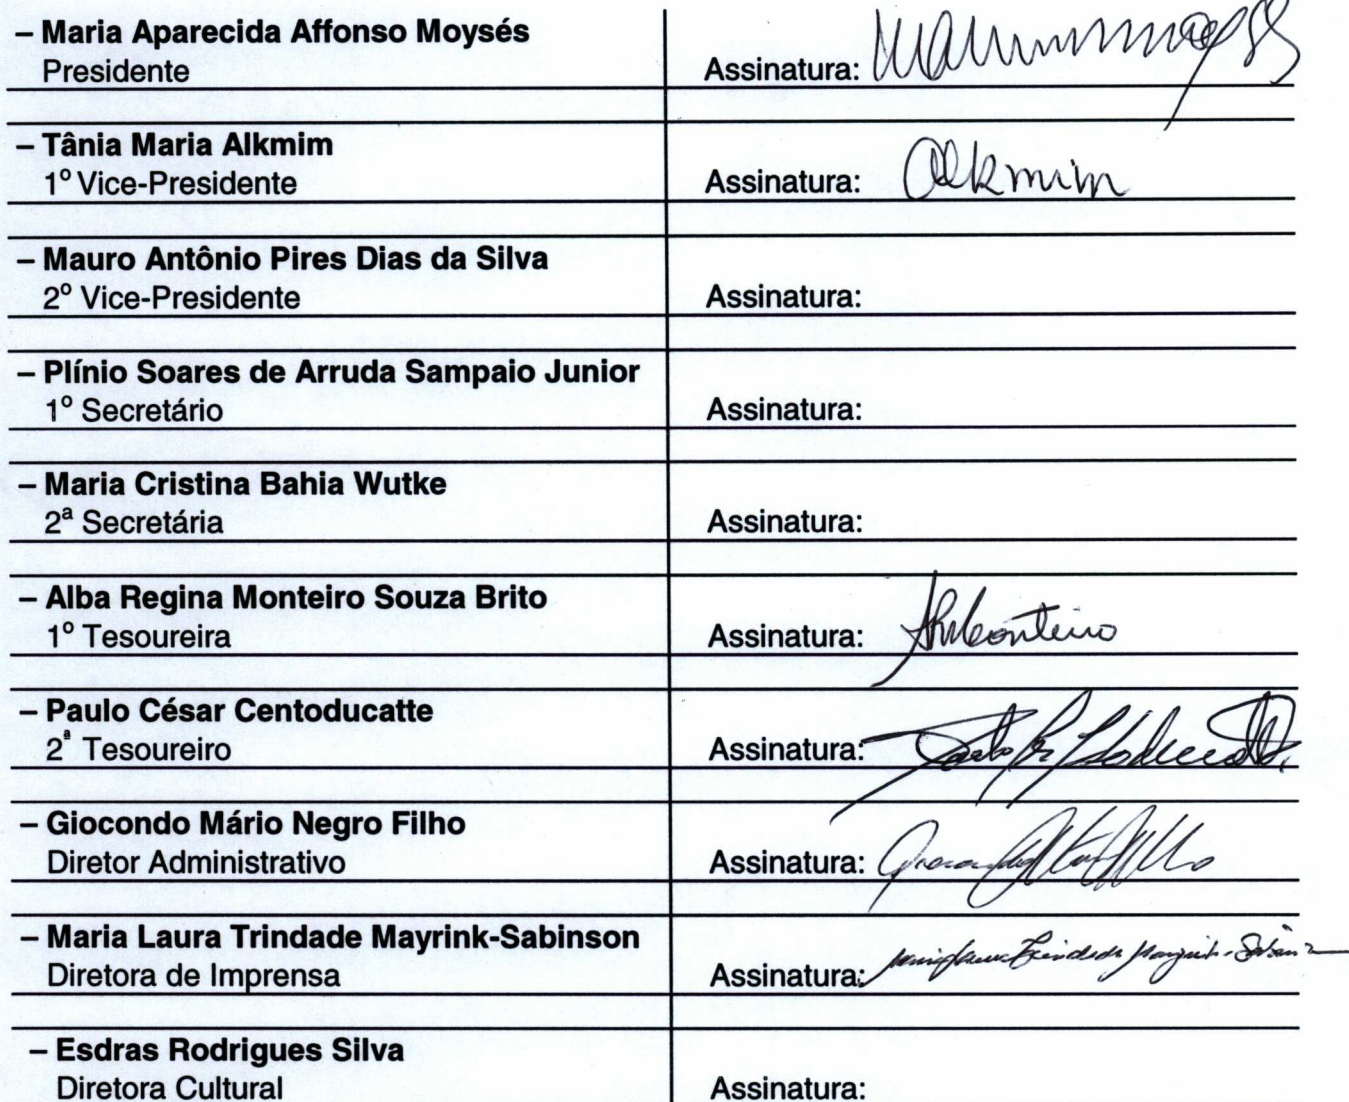 – Maria Aparecida Affonso Moysés
Presidente
Assinatura:
– Tânia Maria Alkmim
1º Vice-Presidente
Assinatura: Alkmim
– Mauro Antônio Pires Dias da Silva
2º Vice-Presidente
Assinatura:
– Plínio Soares de Arruda Sampaio Junior
1º Secretário
Assinatura:
– Maria Cristina Bahia Wutke
2ª Secretária
Assinatura:
– Alba Regina Monteiro Souza Brito
1º Tesoureira
Assinatura: ARMonteiro
– Paulo César Centoducatte
2ª Tesoureiro
Assinatura:
– Giocondo Mário Negro Filho
Diretor Administrativo
Assinatura:
– Maria Laura Trindade Mayrink-Sabinson
Diretora de Imprensa
Assinatura: Maria Laura Trindade Mayrink-Sabinson
– Esdras Rodrigues Silva
Diretora Cultural
Assinatura: